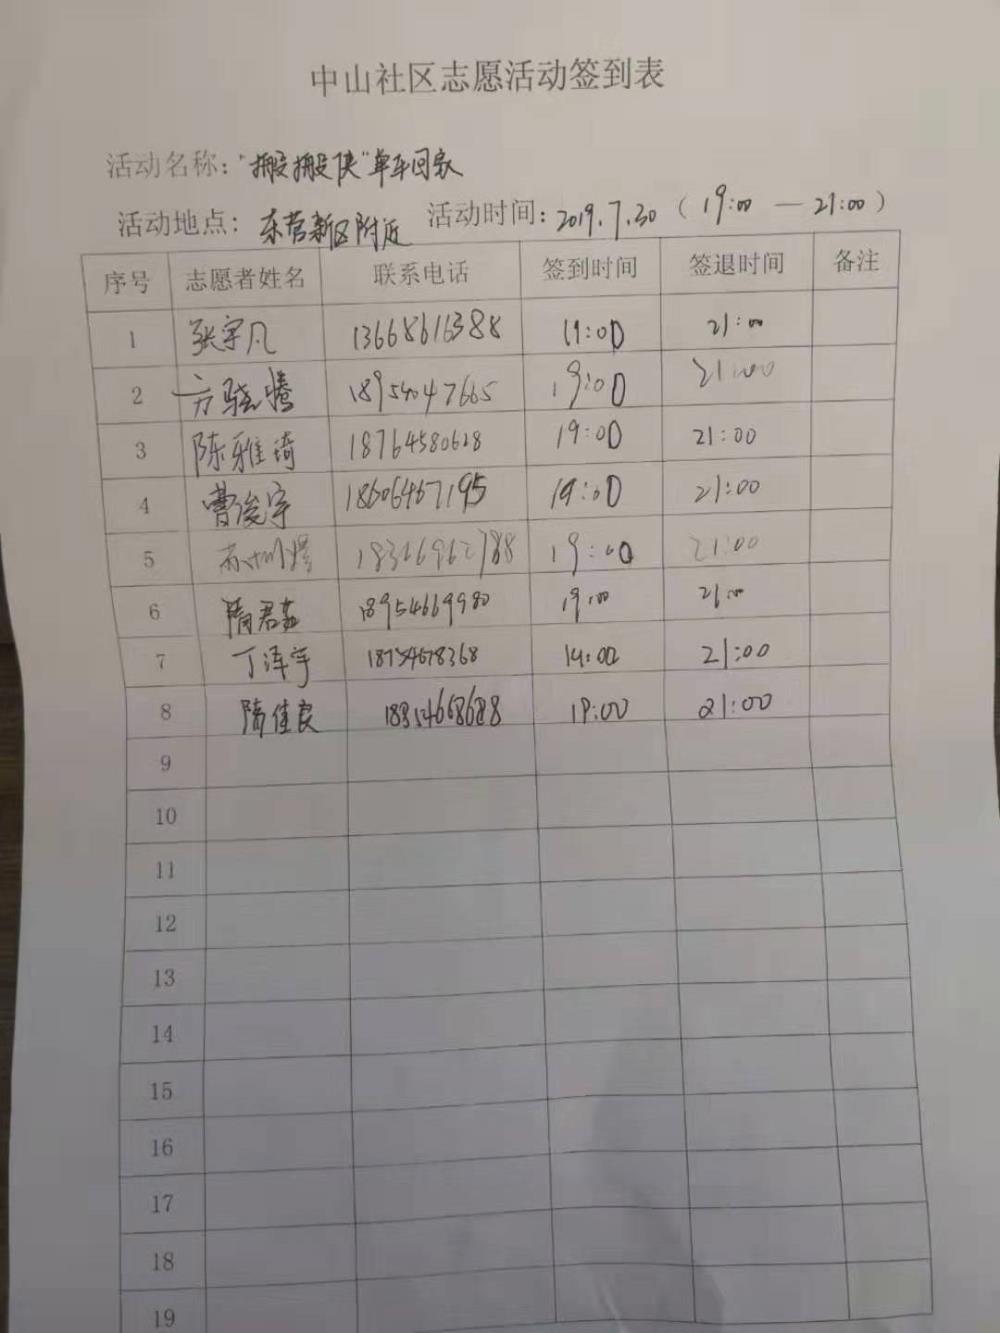 中山社区志愿活动签到表
活动名称："搬搬侠"单车回家
活动地点：东营新区附近 活动时间：2019.7.30（19:00 — 21:00）
序号 志愿者姓名 联系电话 签到时间 签退时间 备注
1 张宇凡 13668616388 19:00 21:00
2 方骁腾 18954047665 19:00 21:00
3 陈雅琦 18764580628 19:00 21:00
4 曹俊宇 18606467195 19:00 21:00
5 18366962788 19:00 21:00
6 隋君 18954669980 19:00 21:00
7 丁泽宇 19:00 21:00
8 隋佳良 19:00 21:00
9
10
11
12
13
14
15
16
17
18
19